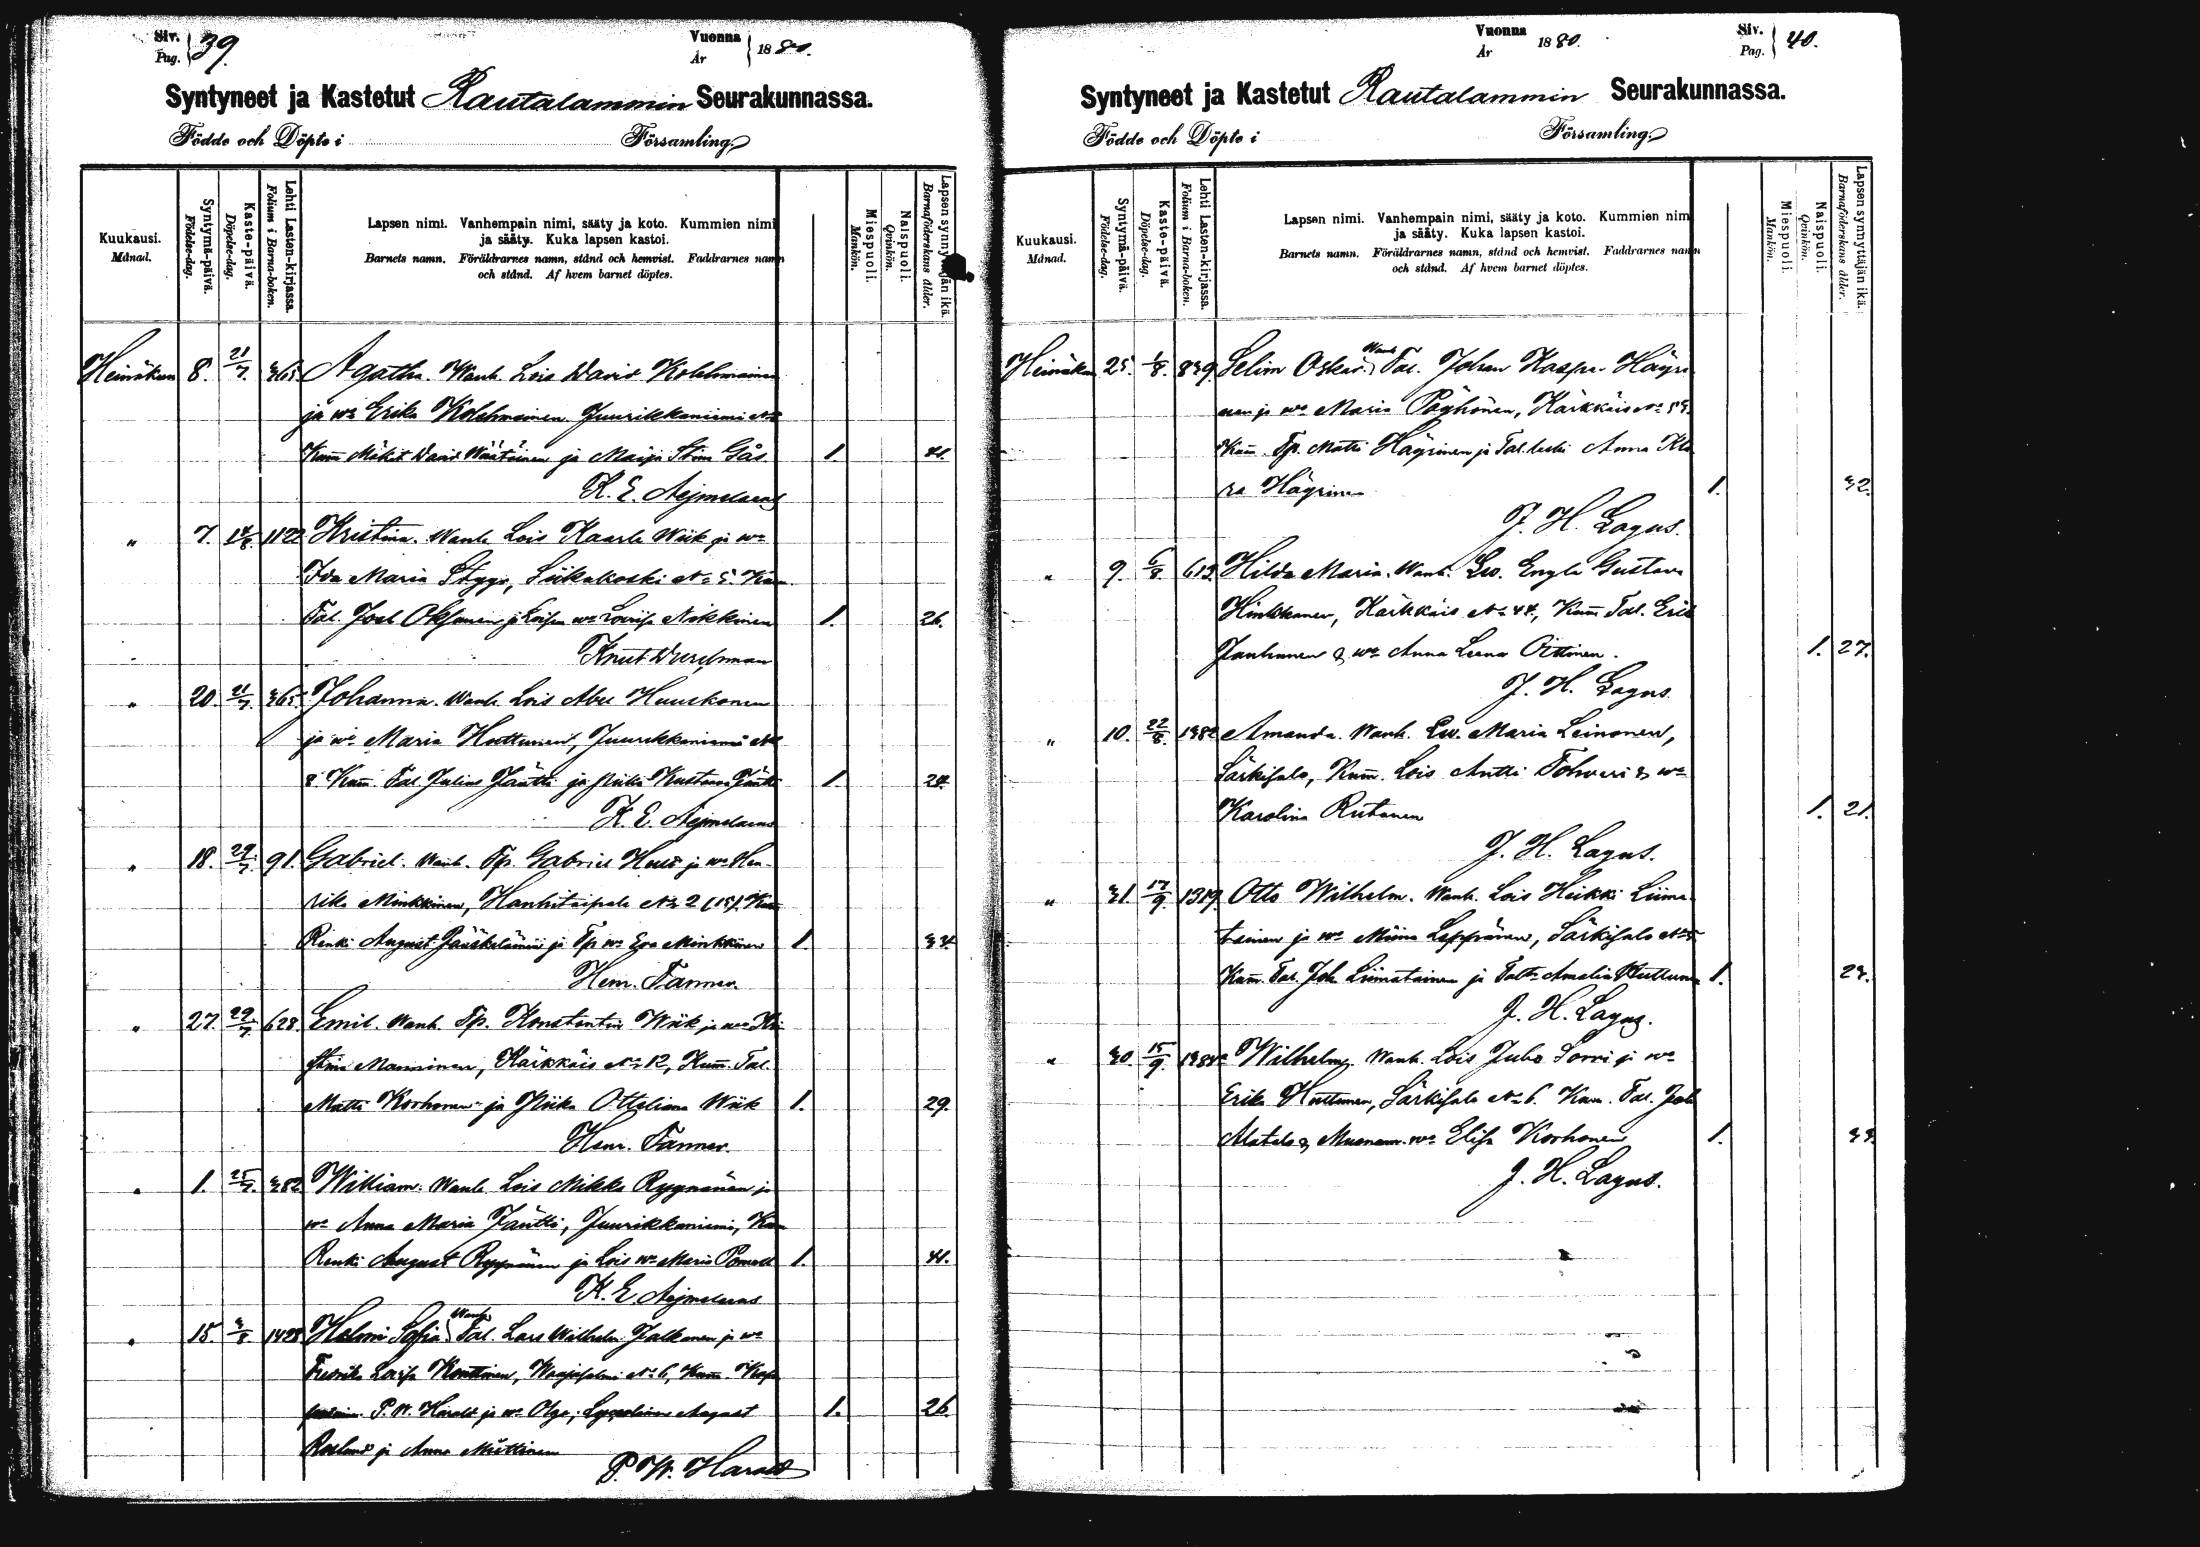 Siv.
Pag. 39.
Vuonna
År
1880.
Syntyneet ja Kastetut Rautalammin Seurakunnassa.
Födde och Döpte i Församling.
Kuukausi.
Månad.
Syntymä-päivä.
Födelse-dag.
Kaste-päivä.
Döpelse-dag.
Lehti Lasten-kirjassa.
Folium i Barna-boken.
Lapsen nimi. Vanhempain nimi, sääty ja koto. Kummien nimi
ja sääty. Kuka lapsen kastoi.
Barnets namn. Föräldrarnes namn, stånd och hemvist. Faddrarnes namn
och stånd. Af hvem barnet döptes.
Miespuoli.
Mankön.
Naispuoli.
Qvinkön.
Lapsen synnyttäjän ikä.
Barnaföderskans ålder.
Heinäkuu 8. 21/7. 365 Agatha. Wanh. Lois David Kolehmainen
ja wo Erika Kolehmainen Juurikkaniemi No
Kum Mäkit David Väätäinen ja Maija Stina Gås 1. 41.
K. E. Aejmelaeus
" 7. 14/8. 1122 Kristina. Wanh. Lois Kaarle Wiik ja wo
Ida Maria Stygg, Siikakoski No 5. Kum
Tal. Joel Oksanen ja Loisen wo Lovisa Nikkinen 1. 26.
Knut Durchman
" 20. 21/7. 365 Johanna. Wanh. Lois Abel Huuskonen
ja wo Maria Huttunen, Juurikkaniemi No
8 Kum. Tal. Julius Jäntti ja piika Kustaava Jäntti 1. 24.
K. E. Aejmelaeus
" 18. 29/7. 91. Gabriel. Wanh. Tp. Gabriel ja wo Hen-
rika Minkkinen, Hanhitaipale No 2 (15). Kum
Renki August Jääskeläinen ja Tp wo Eva Minkkinen 1. 34.
Henr. Fanner.
" 27. 29/7. 628. Emil. Wanh. Tp. Konstantin Wiik ja wo Kri
stina Manninen, Kärkkäis No 12, Kum. Tal.
Matti Korhonen ja Piika Otteliana Wiik 1. 29.
Henr. Fanner.
" 1. 25/7. 382. William. Wanh. Lois Mikko Ryynänen ja
wo Anna Maria Jäntti, Juurikkaniemi, Kum
Renki August Ryynänen ja Lois wo Maria 1. 41.
K. E. Aejmelaeus
" 15. 3/8. 1428 Helmi Sofia. Wanh. Tal. Lars Wilhelm Jalkanen ja wo
Fredrika Lovisa Konttinen, Waajasalmi No 6, Kum. Kap
P. W. Harald ja wo Olga; August
Roslund ja Anna Miettinen 1. 26.
P. W. Harald
Vuonna
År
1880.
Siv.
Pag. 40.
Syntyneet ja Kastetut Rautalammin Seurakunnassa.
Födde och Döpte i Församling.
Kuukausi.
Månad.
Syntymä-päivä.
Födelse-dag.
Kaste-päivä.
Döpelse-dag.
Lehti Lasten-kirjassa.
Folium i Barna-boken.
Lapsen nimi. Vanhempain nimi, sääty ja koto. Kummien nim
ja sääty. Kuka lapsen kastoi.
Barnets namn. Föräldrarnes namn, stånd och hemvist. Faddrarnes namn
och stånd. Af hvem barnet döptes.
Miespuoli.
Mankön.
Naispuoli.
Qvinkön.
Lapsen synnyttäjän ikä.
Barnaföderskans ålder.
Heinäkuu 25. 1/8. 839. Selim Oskar. Wanh. Tal. Johan Kaspr. Häyri
nen ja wo Maria Pöyhönen, Kärkkäis No 53.
Kum. Tp. Matti Häyrinen ja Tal. leski Anna Kla
ra Häyrinen 1. 32.
J. H. Lagus.
" 9. 6/8 613 Hilda Maria. Wanh. Lw. Engla Gustava
Hinkkanen, Kärkkäis No 44, Kum Tal. Erik
Jauhunen & wo Anna Leena Oittinen. 1. 27.
J. H. Lagus.
" 10. 22/8. 1382 Amanda. Wanh. Lw. Maria Leinonen,
Särkisalo, Kum. Lois Antti Tohveri & wo
Karolina Rutanen 1. 21.
J. H. Lagus.
" 31. 17/9. 1319. Otto Wilhelm. Wanh. Lois Heikki Liima-
tainen ja wo Miina Leppänen, Särkisalo No 5.
Kum. Tal. Joh. Liimatainen ja Amalia Huttunen 1. 23.
J. H. Lagus.
" 30. 15/9. 1384 Wilhelm. Wanh. Lois Juho Sorri ja wo
Erika Huttunen, Särkisalo No 6. Kum. Tal. Joh
Matela & wo Elisa Korhonen 1. 33.
J. H. Lagus.